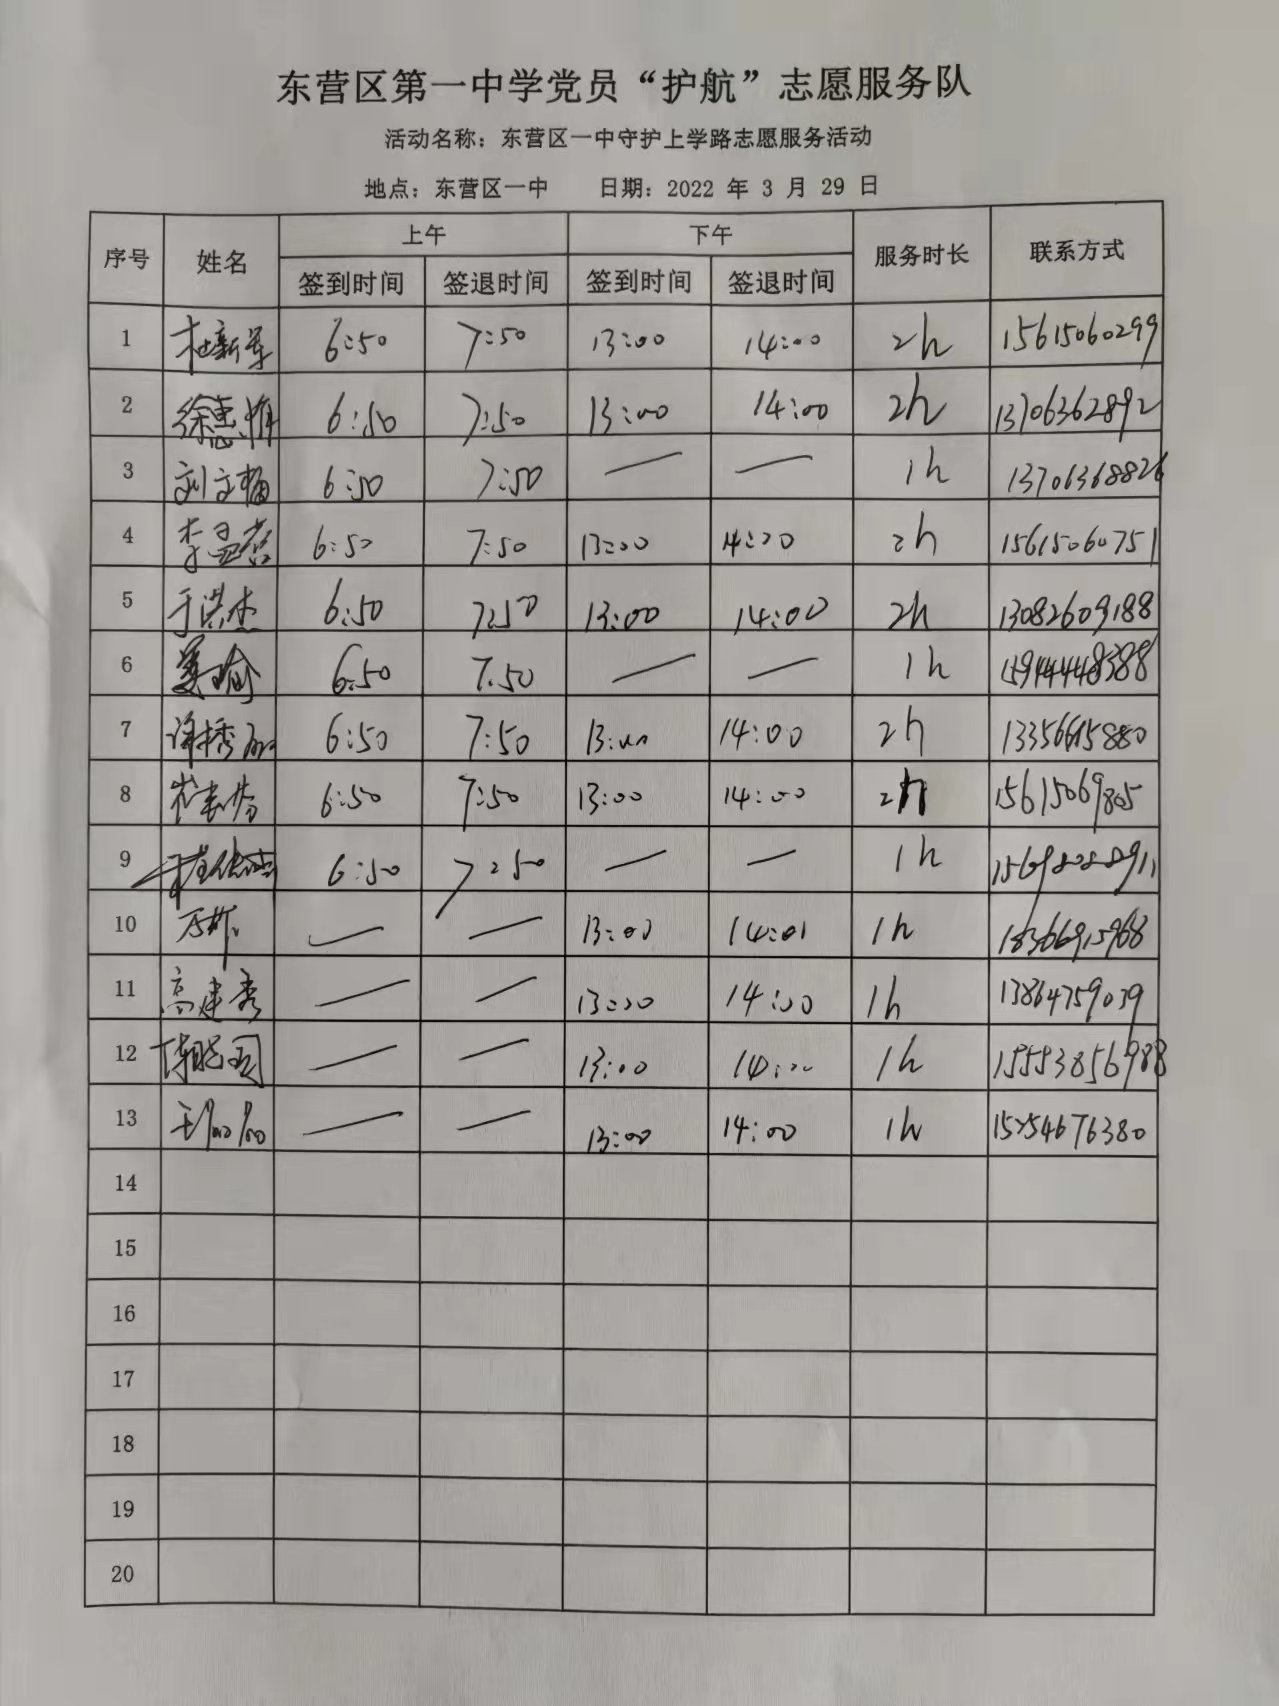 东营区第一中学党员“护航”志愿服务队
活动名称：东营区一中守护上学路志愿服务活动
地点：东营区一中 日期：2022 年 3 月 29 日
序号 姓名 上午 下午 服务时长 联系方式
签到时间 签退时间 签到时间 签退时间
1 杜新军 6:50 7:50 13:00 14:00 2h 15615060299
2 徐惠 6:50 7:50 13:00 14:00 2h 13706362892
3 刘文 6:50 7:50 — — 1h 13706368826
4 李 6:50 7:50 13:00 14:00 2h 15615060751
5 于洪杰 6:50 7:50 13:00 14:00 2h 13082609188
6 姜瑜 6:50 7:50 — — 1h
7 6:50 7:50 13:00 14:00 2h 13356615880
8 崔 6:50 7:50 13:00 14:00 2h 15615069805
9 6:50 7:50 — — 1h
10 — — 13:00 14:01 1h 18366915968
11 高建秀 — — 13:00 14:00 1h 13864759039
12 — — 13:00 14:00 1h 15553856988
13 — — 13:00 14:00 1h 15254676380
14
15
16
17
18
19
20